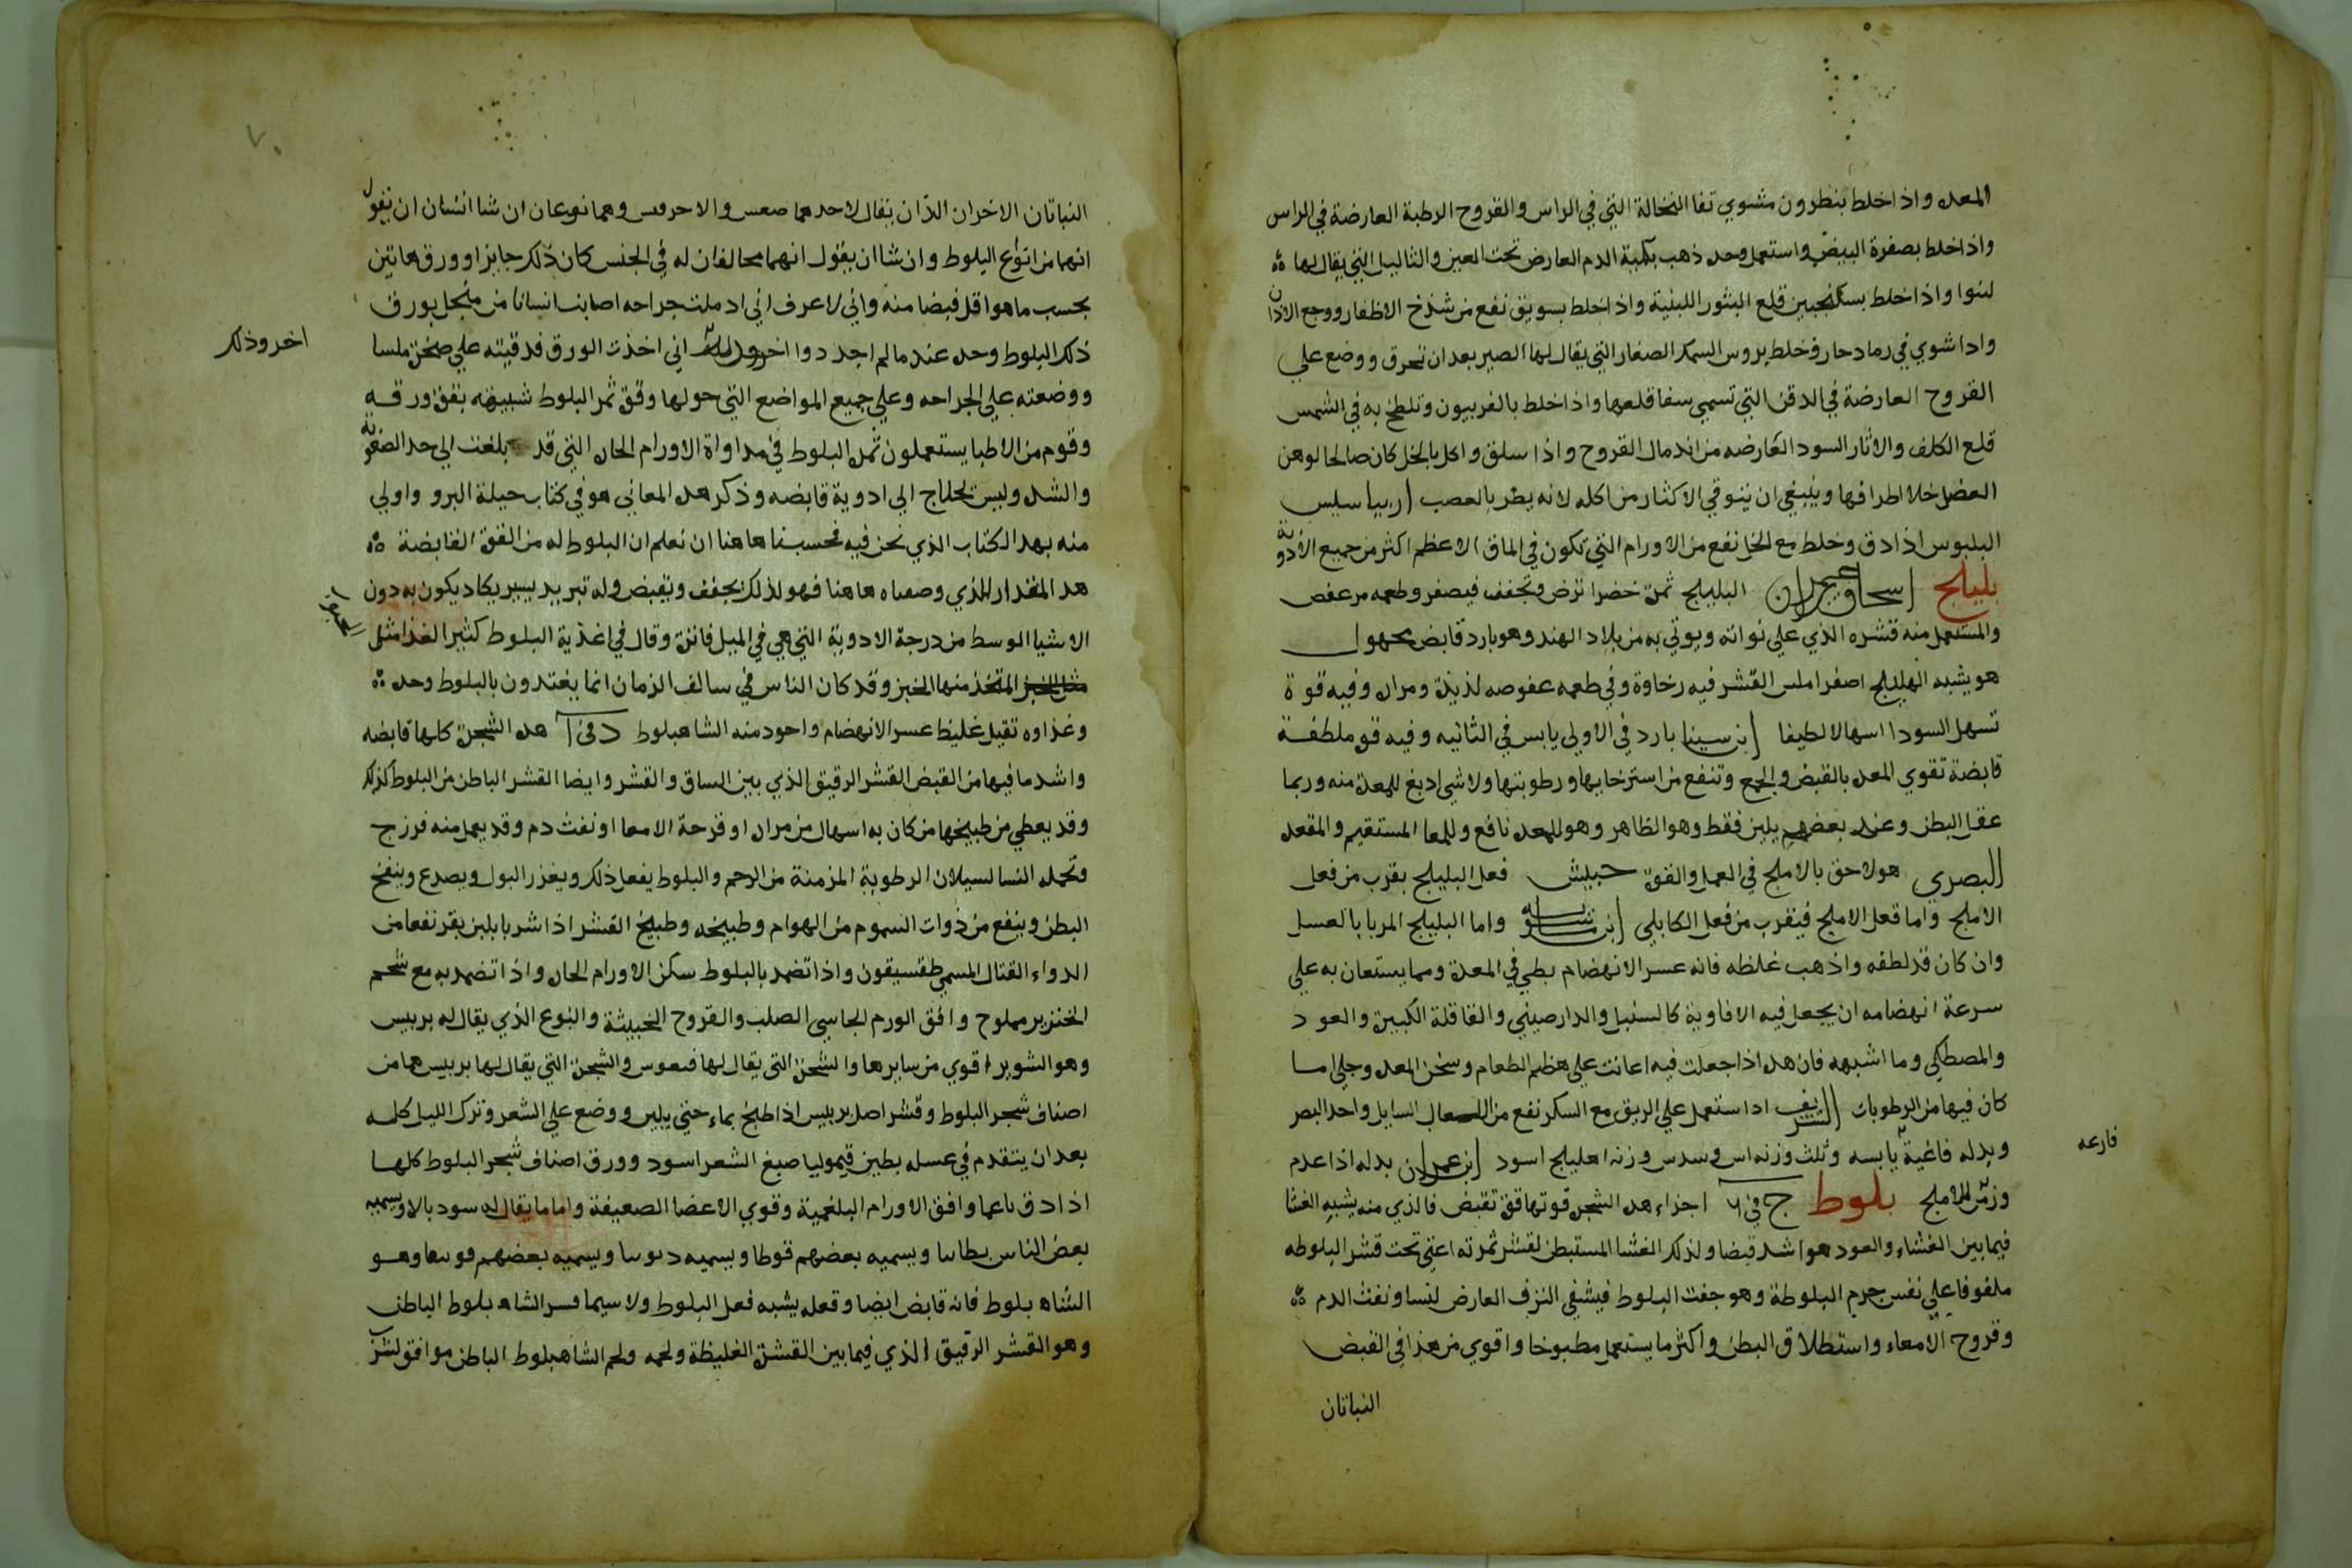 المعده واذا خلط بنطرون مشوي نقا النخالة التي في الراس والقروح الرطبة العارضة في الراس
واذا خلط بصفرة البيض واستعمل وحده ذهب بكمبة الدم العارض تحت العين والثاليل التي يقال لها
لننوا واذا خلط بسكنجبين قلع البثور اللبنية واذا خلط بسويق نفع من شدخ الاظفار ووجع الاذان
واذا شوي في رماد حار وخلط بروس السمك الصغار التي يقال لها الصير بعد ان تحرق ووضع علي
القروح العارضة في الدقن التي تسمي سفا قلعها واذا خلط بالفربيون وتلطخ به في الشمس
قلع الكلف والاثار السود العارضه من اندمال القروح واذا سلق واكل بالخل كان صالحا لوهن
العضل خلا اطرافها وينبغي ان يتوقي الاكثار من اكله لانه يضر بالعصب اريباسيس
البلبوس اذا دق وخلط مع الخل نفع من الاورام التي تكون في الماق الاعظم اكثر من جميع الادوية
بليلج اسحاق بن عمران البليلج ثمرة خضرا ترض وتجفف فيصفر وطعمه مر عفص
والمستعمل منه قشره الذي علي نواته ويوتي به من بلاد الهند وهو بارد قابض مجهول
هو يشبه الهليلج اصفر املس القشر فيه رخاوة وفي طعمه عفوصه لذيذة ومراره وفيه قوة
تسهل السودا اسهالا لطيفا ابن سينا بارد في الاولي يابس في الثانيه وفيه قوه ملطفة
قابضة تقوي المعده بالقبض والجمع وتنفع من استرخايها ورطوبتها ولا شي ادبغ للمعدة منه وربما
عقل البطن وعند بعضهم يلين فقط وهو الظاهر وهو للمعده نافع وللمعا المستقيم والمقعده
البصري هو لاحق بالاملج في العمل والقوة حبيش فعل البليلج يقرب من فعل
الاملج واما فعل الاملج فيقرب من فعل الكابلي ابن ماسويه واما البليلج المربا بالعسل
وان كان قد لطفه واذهب غلظه فانه عسر الانهضام بطي في المعدة ومما يستعان به علي
سرعة انهضامه ان يجعل فيه الافاوية كالسنبل والدارصيني والقاقلة الكبيرة والعود
والمصطكي وما اشبهه فان هذه اذا جعلت فيه اعانت علي هضم الطعام وسخن المعده وجلا ما
كان فيها من الرطوبات الشريف اذا استعمل علي الريق مع السكر نفع من اللعاب السايل واحد البصر
وبدله فاغية يابسه وثلث وزنه اس وسدس وزنه اهليلج اسود ابن عمران بدله اذا عدم
فارعه
وزنه املج بلوط ج في اجزاء هذه الشجره قوتها قوة تقبض فالذي منه يشبه الغشا
فيما بين الغشاء والعود هو اشد قبضا ولذلك الغشا المستبطن لقشر ثمرته اعني تحت قشر البلوطه
ملفوفا علي نفس جرم البلوطة وهو جفت البلوط فيشفي النزف العارض للنسا ونفث الدم
وقروح الامعاء واستطلاق البطن واكثر ما يستعمل مطبوخا واقوي من هذا في القبض
النباتان
٧٠
النباتان الاخران اللذان يقال لاحدهما والاخر وهما نوعان ان شا انسان ان يقول
انهما من انواع البلوط وان شا ان يقول انهما مخالفان له في الجنس كان ذلك جايزا وورق هاتين
بحسب ما هو اقل قبضا منه واني لاعرف اني ادملت جراحه اصابت انسانا من منجل بورق
ذلك البلوط وحده عند ما لم اجد دوا اخر وذلك اني اخذت الورق فدققته علي صخرة ملسا
اخر وذلك
ووضعته علي الجراحه وعلي جميع المواضع التي حولها وقوة ثمر البلوط شبيهه بقوة ورقه
وقوم من الاطبا يستعملون ثمرة البلوط في مداواة الاورام الحاره التي قد بلغت الي حد الصعوبة
والشده وليس تحتاج الي ادوية قابضه وذكر هذه المعاني هو في كتاب حيلة البرو واولي
منه بهذا الكتاب الذي نحن فيه فحسبنا هاهنا ان نعلم ان البلوط له من القوة القابضة
هذا المقدار الذي وصفناه هاهنا فهو لذلك يجفف ويقبض وله تبريد يسير يكاد يكون به دون
الاشيا الوسط من درجة الادوية التي هي في الميل فاترة وقال في اغذية البلوط كثير الغذا مثل
مثل الخبز المتخذ منها الخبز وقد كان الناس في سالف الزمان انما يغتذون بالبلوط وحده
وغذاوه ثقيل غليظ عسر الانهضام واجود منه الشاهبلوط د في ا هذه الشجرة كلها قابضه
واشد ما فيها من القبض القشر الرقيق الذي بين الساق والقشر وايضا القشر الباطن من البلوط كذلك
وقد يعطي من طبيخها من كان به اسهال من مراره او قرحة الامعا او نفث دم وقد يعمل منه فرزج
وتحمله النسا لسيلان الرطوبة المزمنة من الرحم والبلوط يفعل ذلك ويغزر البول ويصدع وينفخ
البطن وينفع من ذوات السموم من الهوام وطبيخه وطبيخ القشر اذا شربا بلبن بقر نفعا من
الدواء القتال المسمي طقسيقون واذا تضمد بالبلوط سكن الاورام الحاره واذا تضمد به مع شحم
الخنزير مملوح وافق الورم الجاسي الصلب والقروح الخبيثة والنوع الذي يقال له بربيس
وهو الشوبر اقوي من سايرها والشجرة التي يقال لها فيعوس والشجرة التي يقال لها بربيس هما من
اصناف شجر البلوط وقشر اصل بربيس اذا طبخ بماء حتي يلين ووضع علي الشعر وترك الليل كله
بعد ان يتقدم في غسله بطين قيموليا صبغ الشعر اسود وورق اصناف شجر البلوط كلها
اذا دق ناعما وافق الاورام البلغمية وقوي الاعضا الضعيفة واما ما يقال له سود بالاو يسميه
بعض الناس ويسميه بعضهم قوطا ويسميه ويسميه بعضهم وهو
الشاه بلوط فانه قابض ايضا وفعله يشبه فعل البلوط ولا سيما قشر الشاه بلوط الباطن
وهو القشر الرقيق الذي فيما بين القشرة الغليظة ولحمه ولحم الشاهبلوط الباطن موافق لشرب